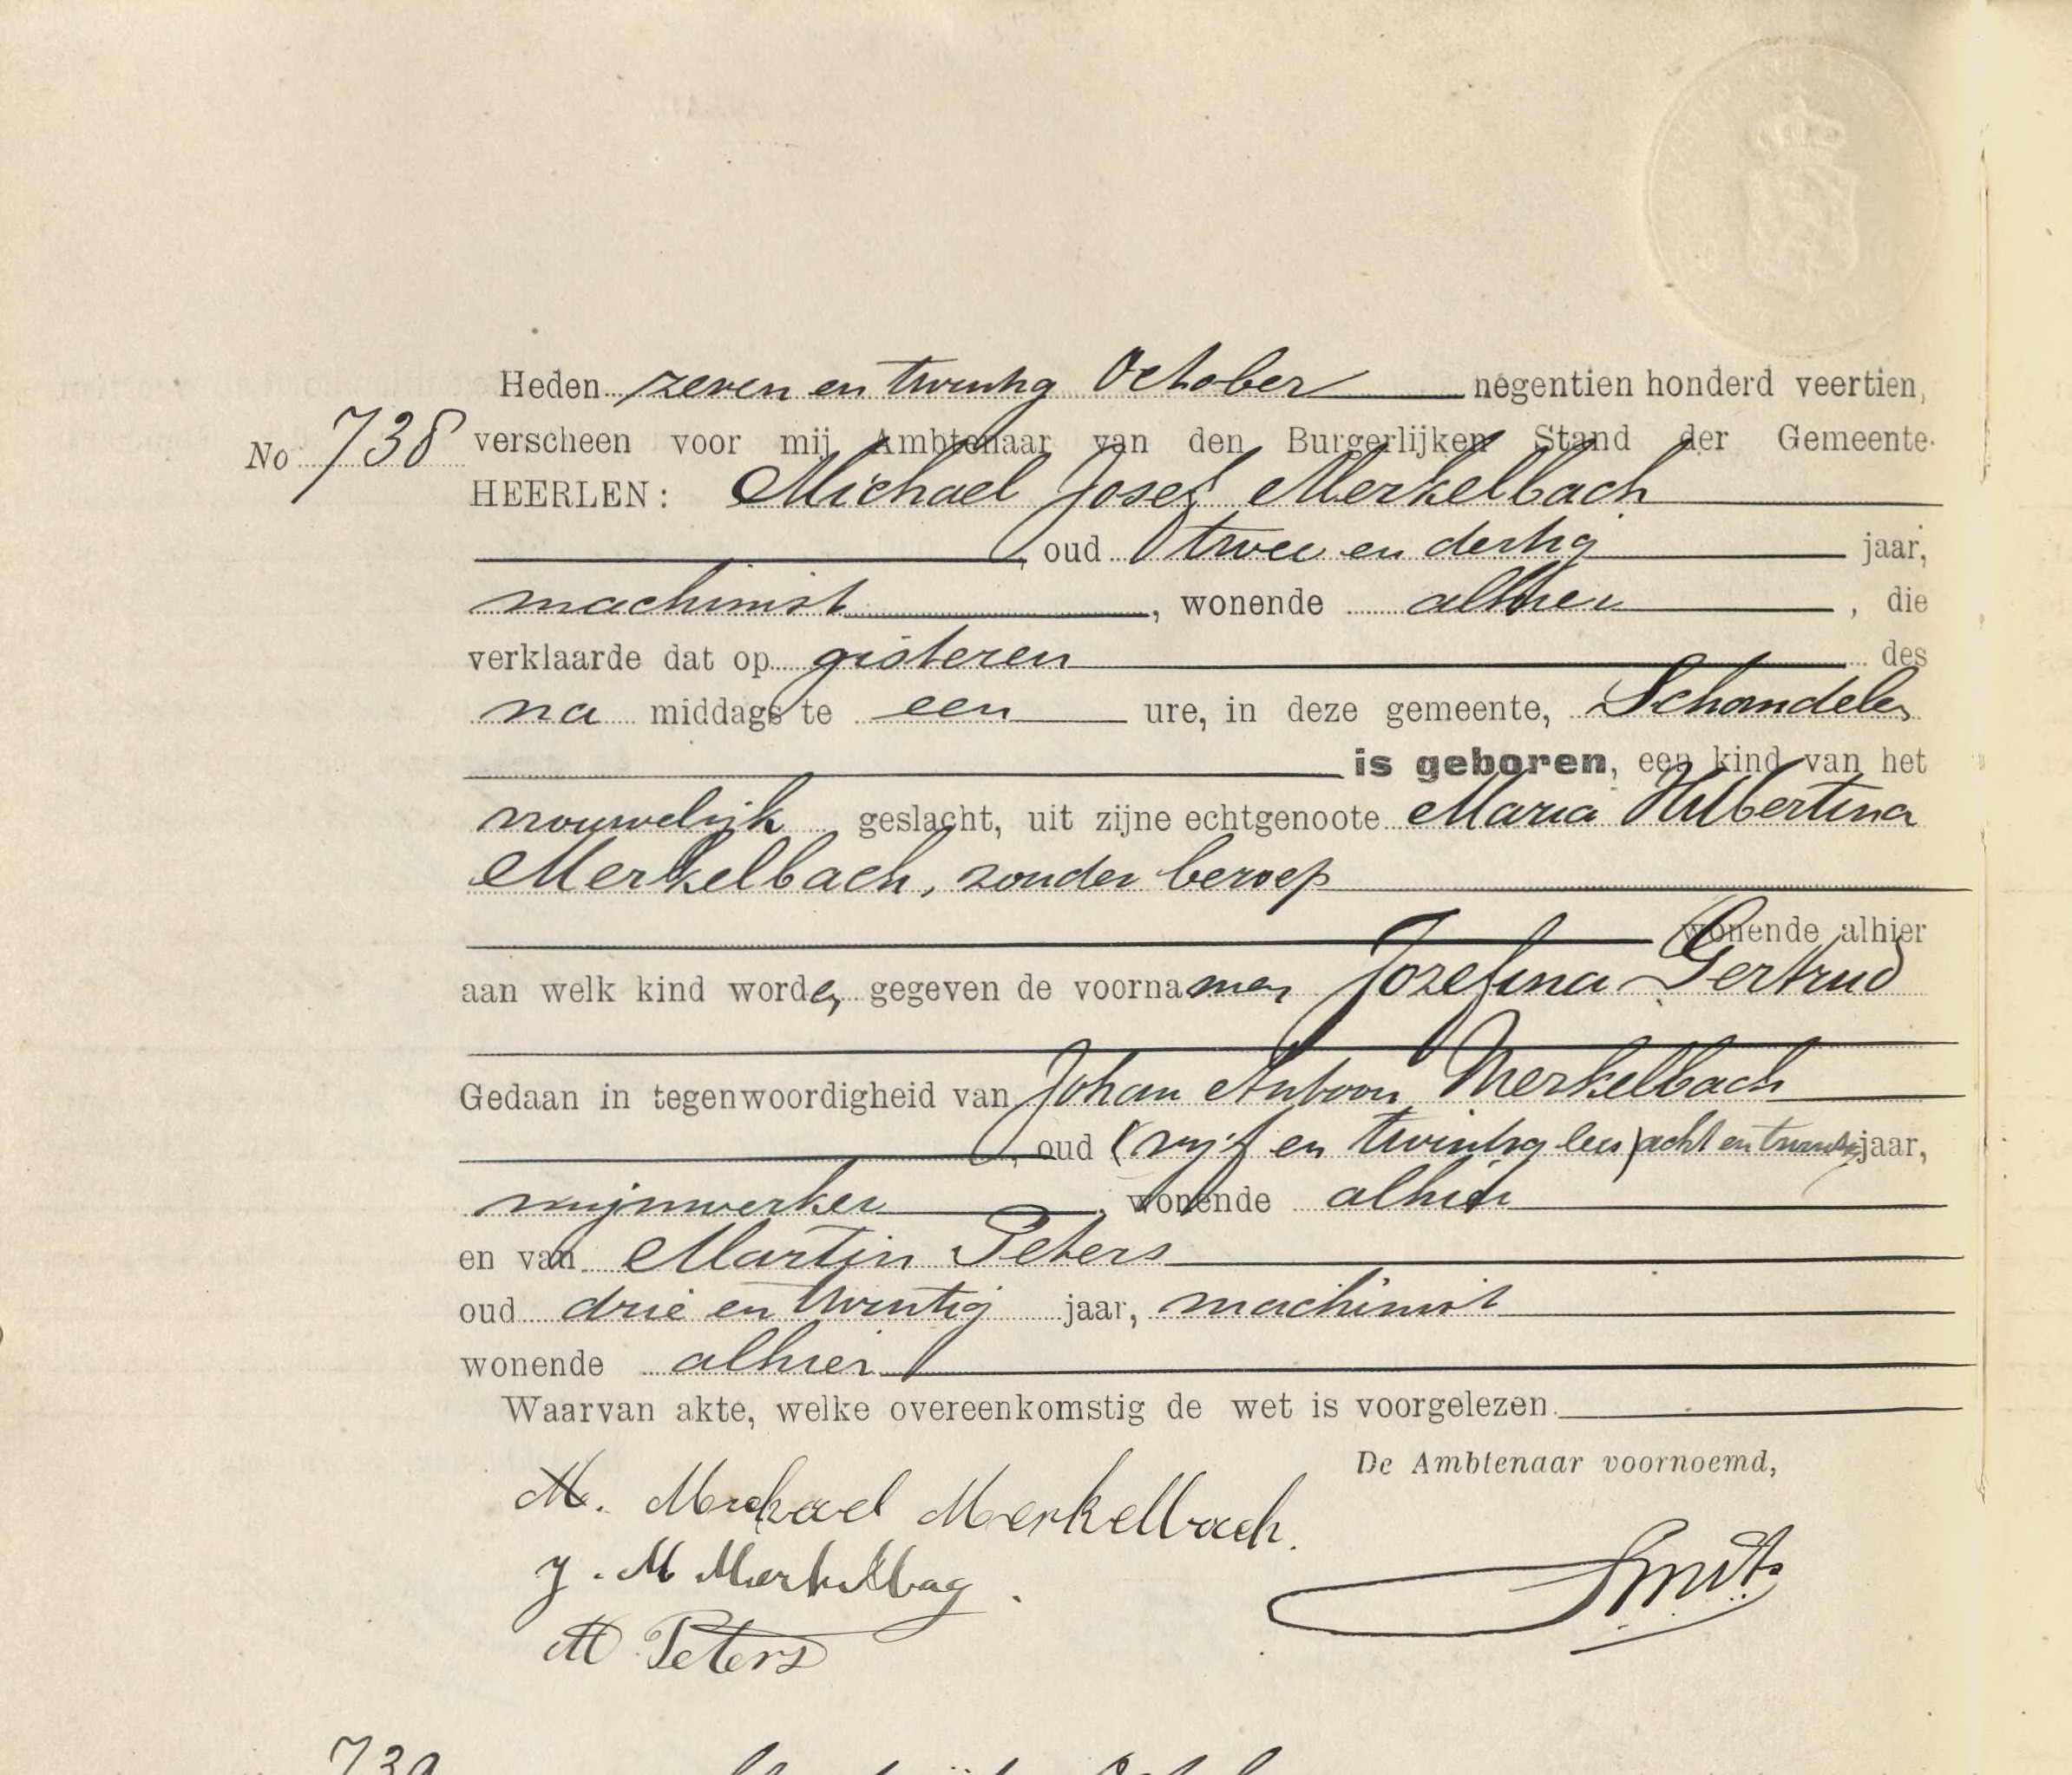 Heden zeven en twintig October negentien honderd veertien,
No 738 verscheen voor mij Ambtenaar van den Burgerlijken Stand der Gemeente
HEERLEN: Michael Josef Merkelbach
, oud twee en dertig jaar,
machinist, wonende alhier, die
verklaarde dat op gisteren des
na middags te een ure, in deze gemeente, Schandelen
is geboren, een kind van het
vrouwelijk geslacht, uit zijne echtgenoote Maria Hubertina
Merkelbach, zonder beroep
wonende alhier
aan welk kind worden gegeven de voornamen Jozefina Gertrud
Gedaan in tegenwoordigheid van Johan Antoon Merkelbach
, oud (vijf en twintig lees) acht en twintig jaar,
mijnwerker, wonende alhier
en van Martin Peters
oud drie en twintig jaar, machinist
wonende alhier
Waarvan akte, welke overeenkomstig de wet is voorgelezen.
De Ambtenaar voornoemd,
M. Michael Merkelbach.
J. M Merkelbag.
Smits
M Peters
739